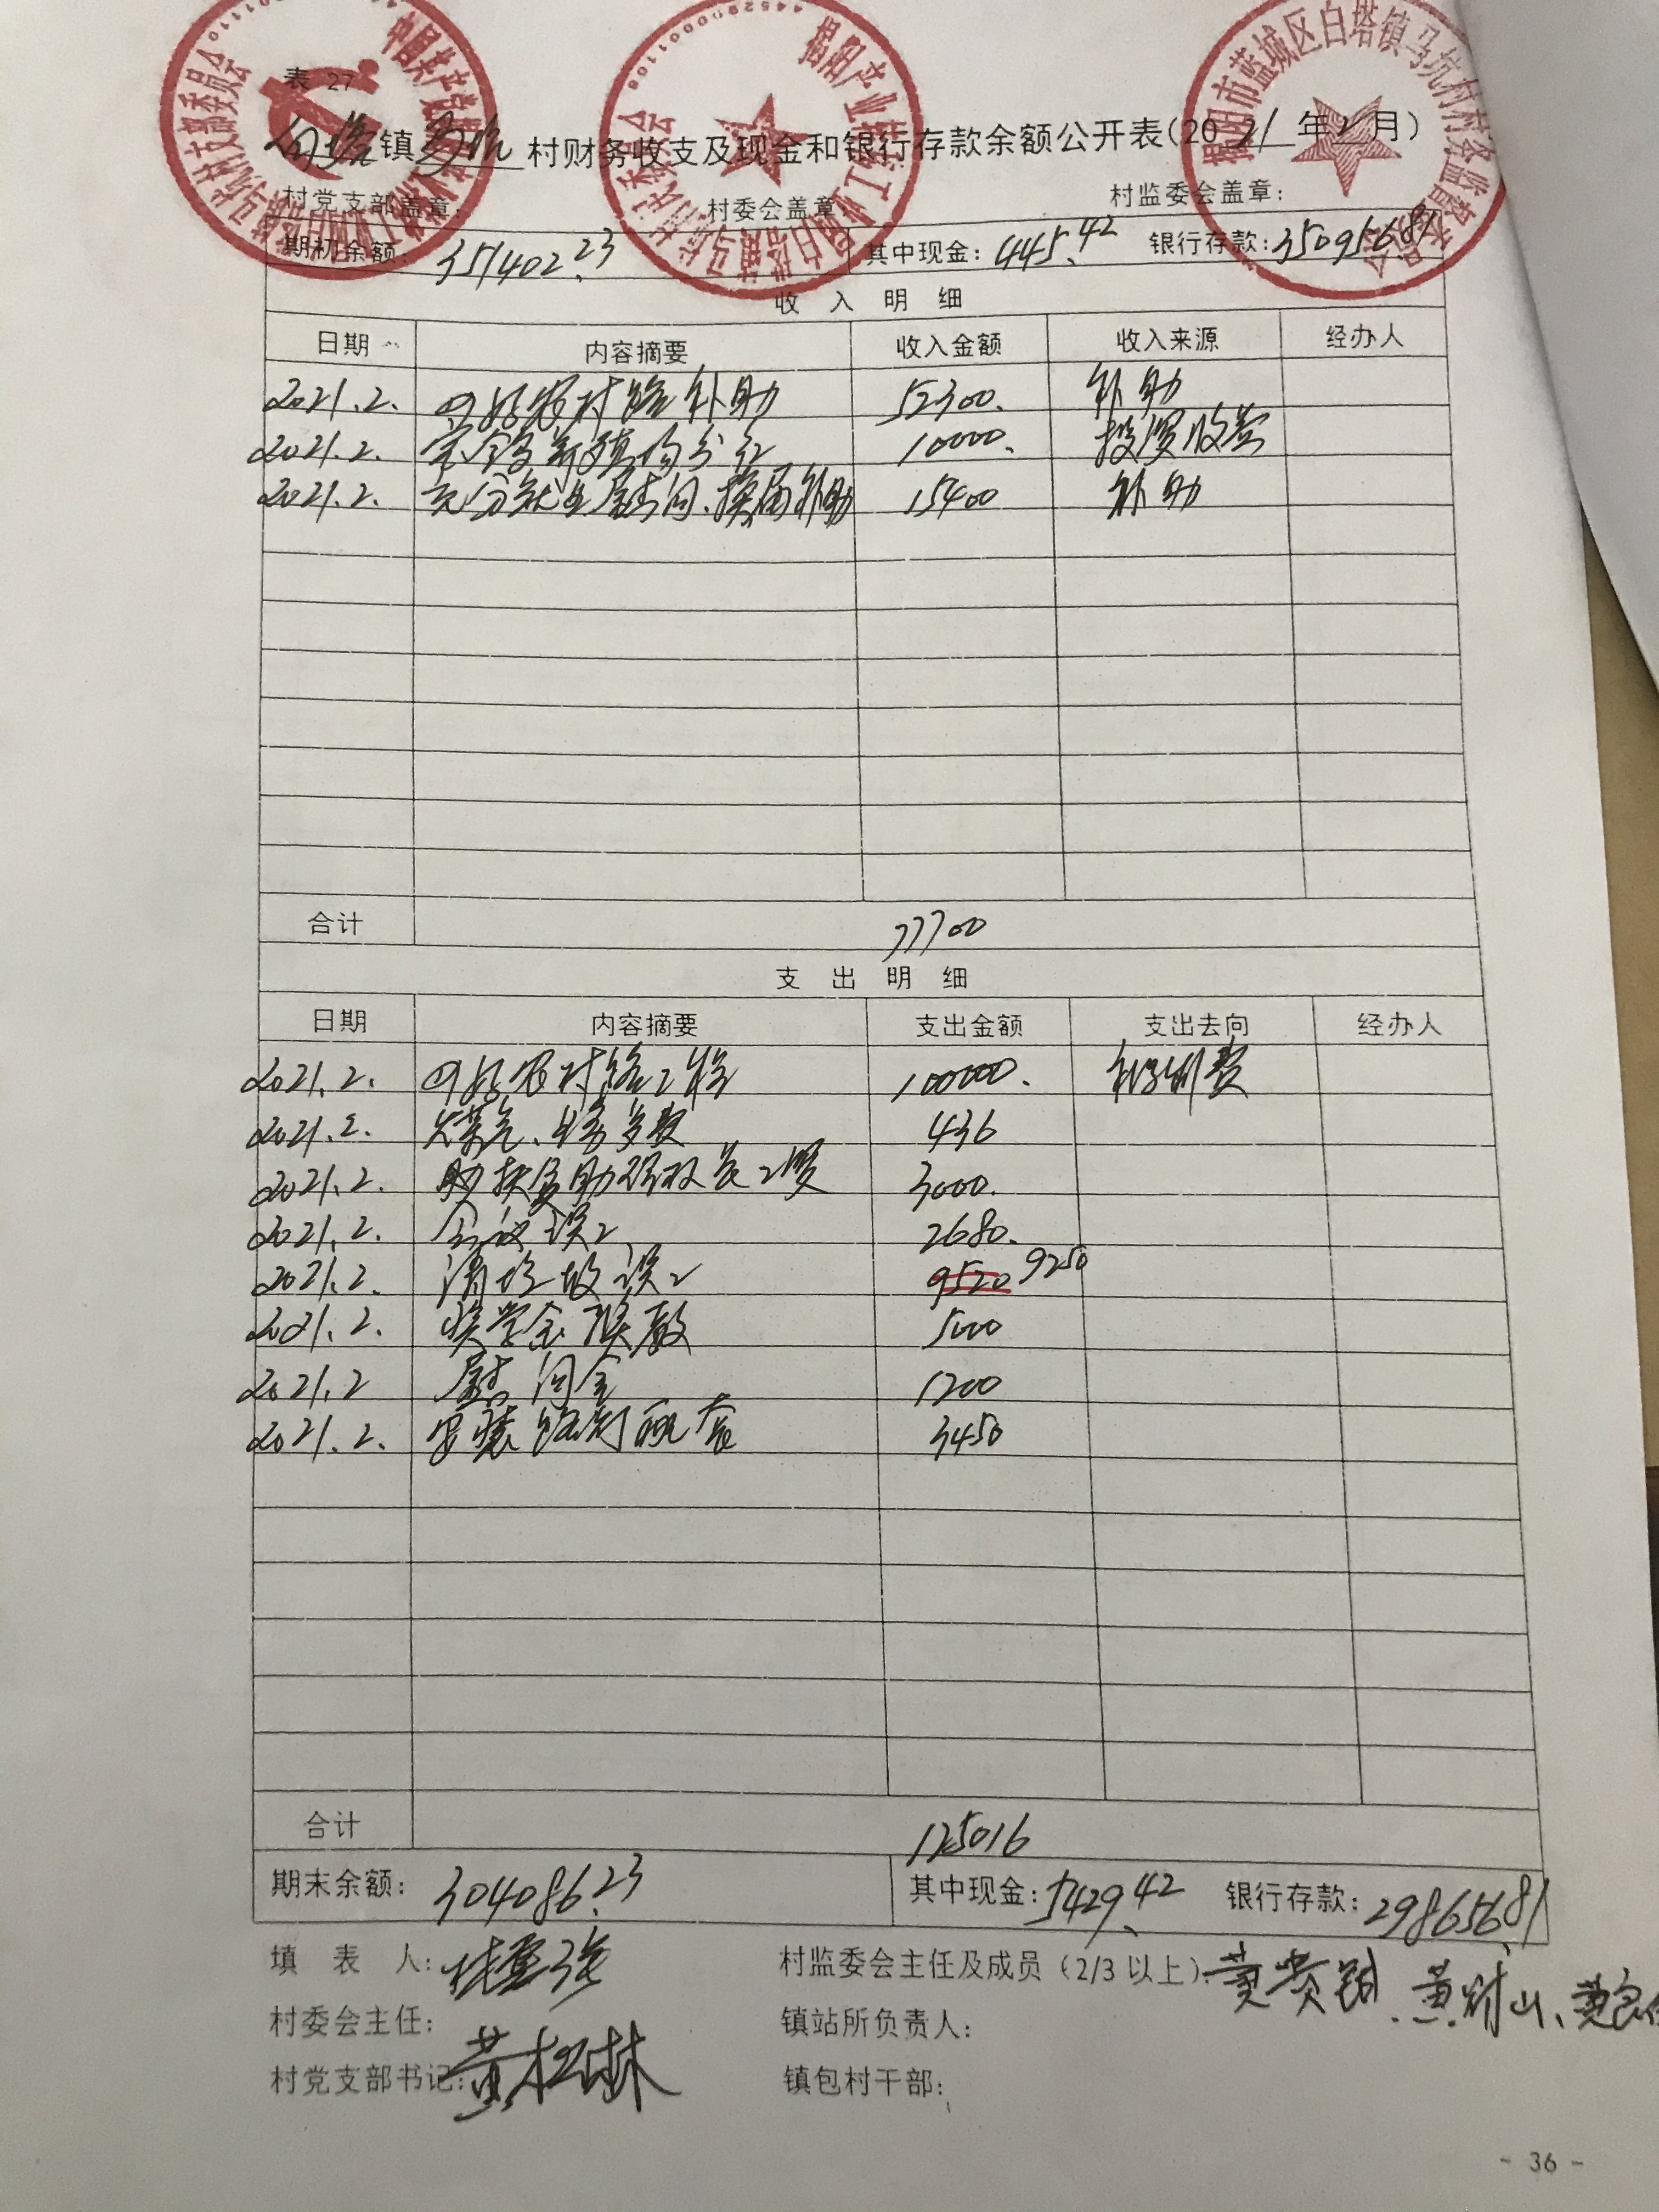 表 27
白塔镇马坑村财务收支及现金和银行存款余额公开表(2021年2月)
村党支部盖章: 村委会盖章: 村监委会盖章:
期初余额: 351402.23 其中现金: 445.42 银行存款: 350956.81
收 入 明 细
日期 内容摘要 收入金额 收入来源 经办人
2021.2. 四好农村路补助 52300. 补助
2021.2. 分红 10000. 投资收益
2021.2. 充分就业慰问、换届补助 15400 补助
合计 77700
支 出 明 细
日期 内容摘要 支出金额 支出去向 经办人
2021.2. 四好农村路工程 100000.
2021.2. 436
2021.2. 3000.
2021.2. 会议误工 2680.
2021.2. 清垃圾误工 9520 9250
2021.2. 奖学金 5000
2021.2 慰问金 1200
2021.2. 安装路灯配套 3450
合计 125016
期末余额: 304086.23 其中现金: 5429.42 银行存款: 298656.81
填 表 人: 村监委会主任及成员(2/3 以上):
村委会主任: 镇站所负责人:
村党支部书记: 黄松林 镇包村干部:
- 36 -